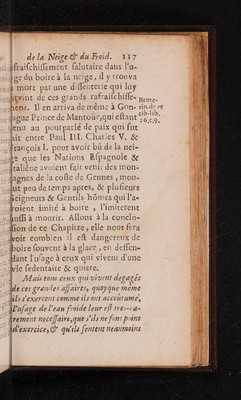 de la Neige & du Froid. 117
fraischissement salutaire dans l'u-
ge du boire à la neige, il y trouva
mort par une dissenterie qui luy
vint de ces grands rafraischisse-
mens. Il en arriva de même à Gon-
ague Prince de Mantoüe, qui estant
enu au pourparlé de paix qui fut
ait entre Paul III. Charles V. &
rançois I. pour avoir bû de la nei-
e que les Nations Espagnole &
taliéne avoient fait venir des mon-
agnes de la coste de Gennes, mou-
ut peu de temps apres, & plusieurs
eigneurs & Gentils hômes qui l'a-
oient imité à boire, l'imiterent
ussi à mourir. Allons à la conclu-
sion de ce Chapitre, elle nous fera
voir combien il est dangereux de
boire souvent à la glace, en deffen-
dant l'usage à ceux qui vivent d'une
vie sedentaire & quiete.
Mais tous ceux qui vivent degagés
de ces grandes affaires, quoy que même
ils s'exercent comme ils ont accoûtumé,
l'usage de l'eau froide leur est tres-ra-
rement necessaire, que s'ils ne font point
d'exercice, & qu'ils sentent neanmoins
tib. lib.
16, c. 9.